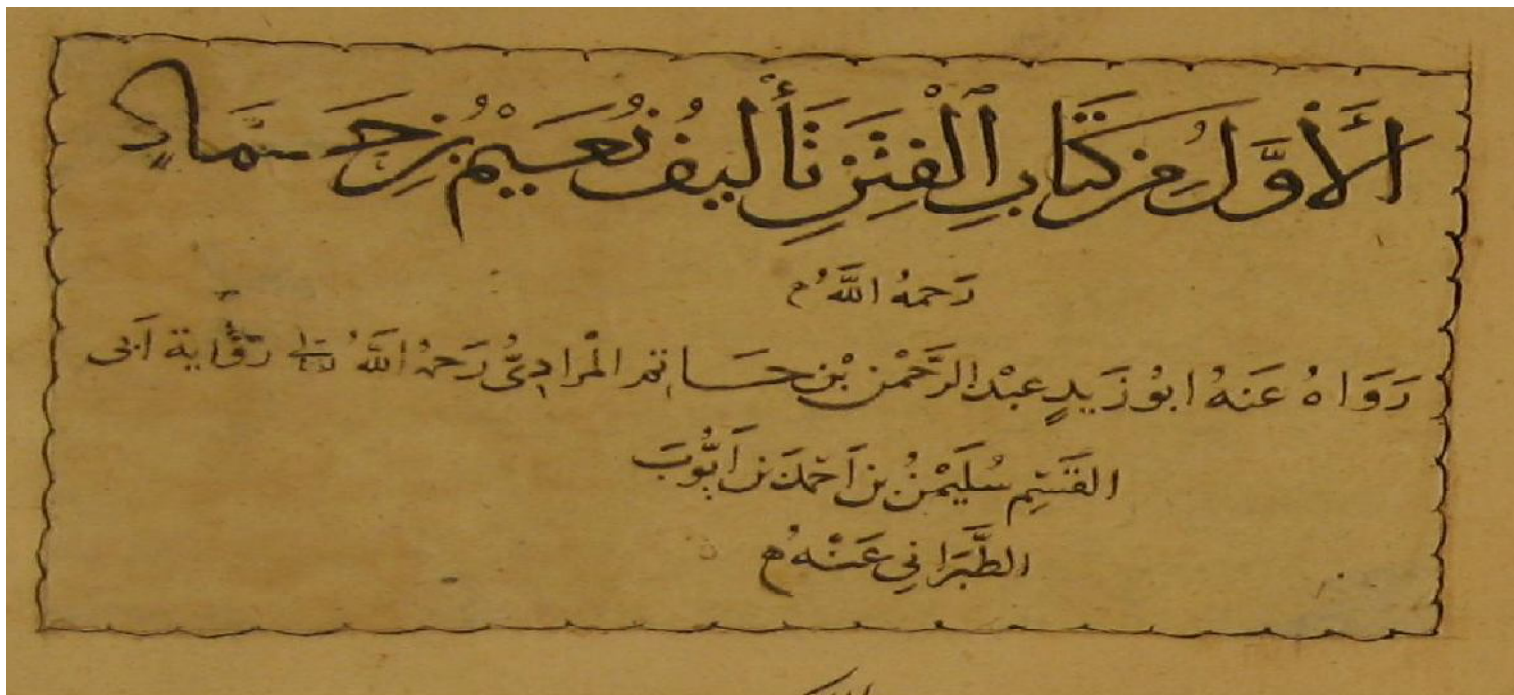 الْأَوَّلُ مِن كِتَابِ ٱلْفِتَنِ تَأْلِيفُ نُعَيْمُ بْنِ حَمَّادٍ
رَحمهُ اللَّهُ
رَوَاهُ عَنهُ ابوُ زَيدٍ عبْد الرَّحْمٰن بْن حَاتِم المْرادِىُّ رَحمهُ اللَّهُ روَاية اَبى
القَسِم سُلَيْمٰنُ بن اَحْمَدَ بن اَيُّوبَ
الطَّبَرَانِي عَنْهُ